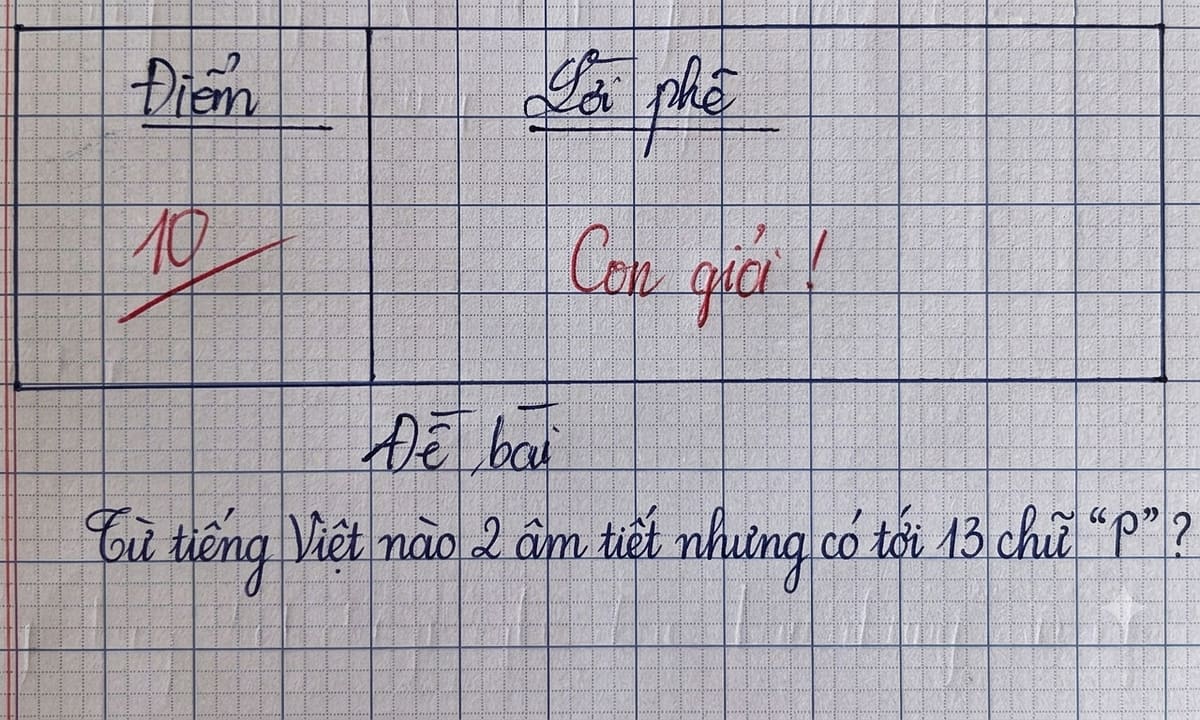 Điểm
Lời phê
10
Con giỏi !
Đề bài
Từ tiếng Việt nào 2 âm tiết nhưng có tới 13 chữ “P” ?